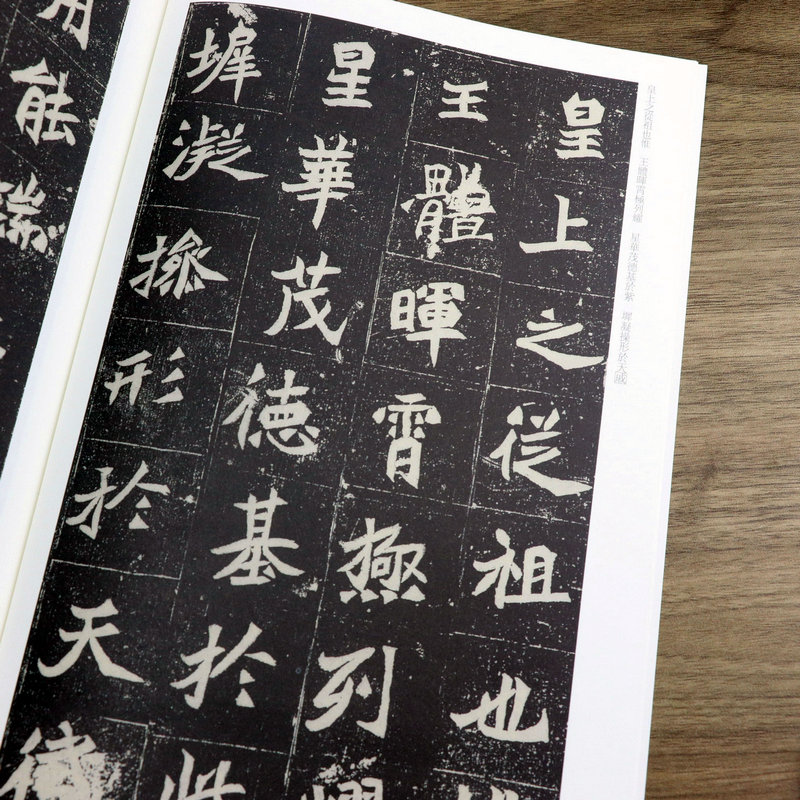 皇上之從祖也惟 王體暉霄極列耀 星華茂德基於紫 墀凝操形於天
皇上之從祖也
王體暉霄極列耀
星華茂德基於紫
墀凝操形於天
能